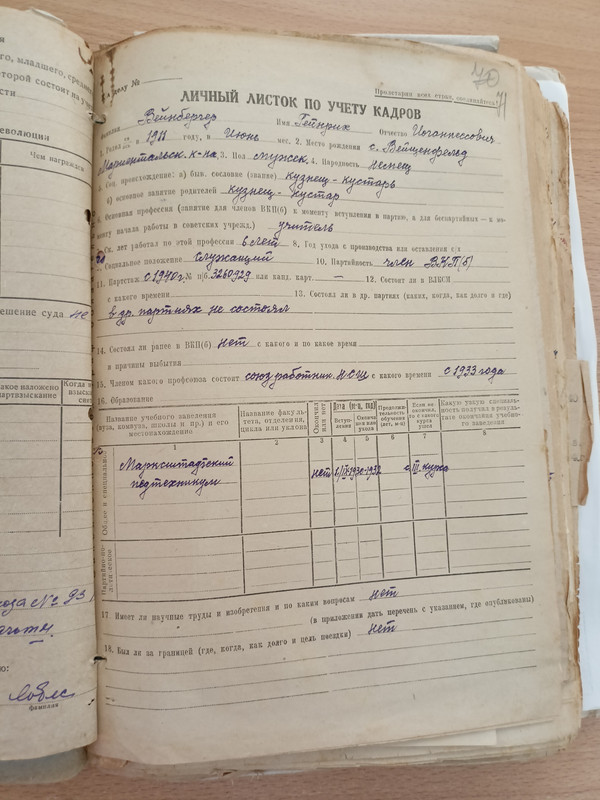 К делу №
71
Пролетарии всех стран, соединяйтесь!
ЛИЧНЫЙ ЛИСТОК ПО УЧЕТУ КАДРОВ
Фамилия Вейнбергер Имя Гейнрих Отчество Иоганнессович
1. Родил ся в 1911 году, в Июнь мес. 2. Место рождения с. Вейценфельд
Мариентальск. к-на 3. Пол мужск. 4. Народность немец
5. Соц. происхождение: а) быв. сословие (звание) кузнец-кустарь
б) основное занятие родителей кузнец-кустар
6. Основная профессия (занятие для членов ВКП(б) к моменту вступления в партию, а для беспартийных — к мо-
менту начала работы в советских учрежд.) учитель
7. Ск. лет работал по этой профессии 6 лет 8. Год ухода с производства или оставления с/х
9. Социальное положение служащий 10. Партийность член ВКП(б)
11. Партстаж с 1940г. № п/б. 3260929 или канд. карт — 12. Состоит ли в ВЛКСМ
с какого времени 13. Состоял ли в др. партиях (каких, когда, как долго и где)
в др. партиях не состоял
14. Состоял ли ранее в ВКП(б) нет с какого и по какое время
и причины выбытия
15. Членом какого профсоюза состоит союз работник. НСШ с какого времени с 1933 года
16. Образование
Название учебного заведения (вуза, комвуза, школы и пр.) и его местонахождение
Название факультета, отделения, цикла или уклона
Окончил или нет
Дата (м-ц, год)
Вступления
Окончания или ухода
Продолжительность обучения (лет, м-ц)
Если не окончил, то с какого курса ушел
Какую узкую специальность получил в результате окончания учебного заведения
1 2 3 4 5 6 7 8
Общее и специальное
Марксштадтский
педтехникум
нет
1930-1932
с III. курса
Партийно-политическое
17. Имеет ли научные труды и изобретения и по каким вопросам нет
(в приложении дать перечень с указанием, где опубликованы)
18. Был ли за границей (где, когда, как долго и цель поездки) нет
его, младшего, средн
которой состоит на уч
сти
еволюции
Чем награжден
решение суда не
какое наложено
партвзыскание
Когда в
взыска
сня
№ 93
ю:
фамилия